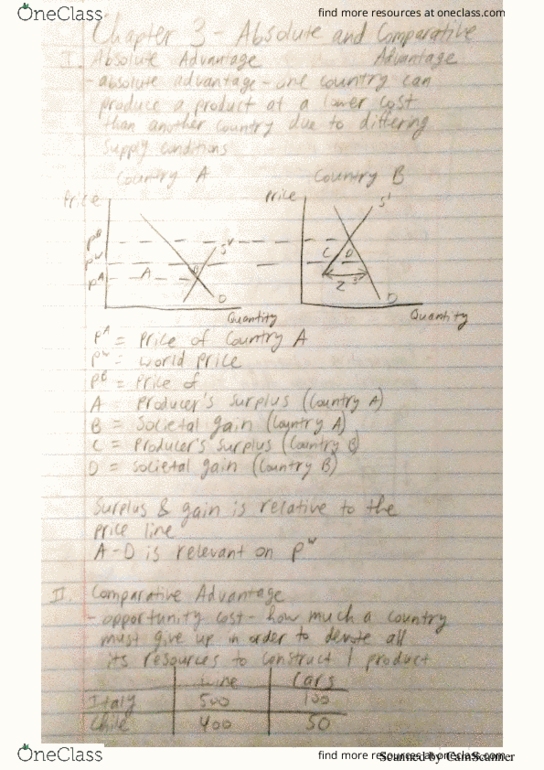 OneClass
find more resources at oneclass.com
Chapter 3 - Absolute and Comparative
Advantage
I. Absolute Advantage
- absolute advantage - one country can
produce a product at a lower cost
than another country due to differing
supply conditions
Country A
Country B
Price
Price
S^1
P^B
S^A
C D
P^W
A B
P^A
Z
D
D
Quantity
Quantity
P^A = Price of Country A
P^W = World Price
P^B = Price of
A = Producer's Surplus (Country A)
B = Societal gain (Country A)
C = Producer's Surplus (Country B)
D = Societal gain (Country B)
Surplus & gain is relative to the
price line
A-D is relevant on P^W
II. Comparative Advantage
- opportunity cost - how much a country
must give up in order to devote all
its resources to construct 1 product
Wine Cars
Italy 500 100
Chile 400 50
OneClass
find more resources at oneclass.com
Scanned by CamScanner